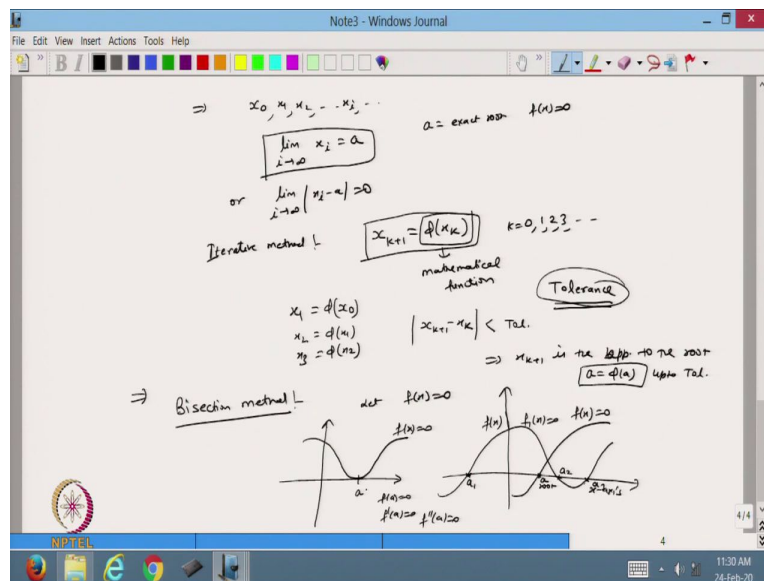 Note3 - Windows Journal
File Edit View Insert Actions Tools Help
B I
⇒ x₀, x₁, x₂, - - xᵢ, - -
a = exact root f(x)=0
lim xᵢ = a
i→∞
or lim |xᵢ-a| = 0
i→∞
Iterative method !- x_{k+1} = φ(x_k) k=0,1,2,3, - -
↓
mathematical
function
Tolerance
x₁ = φ(x₀)
x₂ = φ(x₁)
x₃ = φ(x₂)
|x_{k+1} - x_k| < Tol.
⇒ x_{k+1} is the app. to the root
a = φ(a) upto Tol.
⇒ Bisection method !- let f(x)=0
f(x)=0
a
f(a)=0
f'(a)=0 f''(a)=0
f(x) f₁(x)=0 f(x)=0
a₁ a root a₂ a₃ x-axis
NPTEL
4/4
4
11:30 AM
24-Feb-20